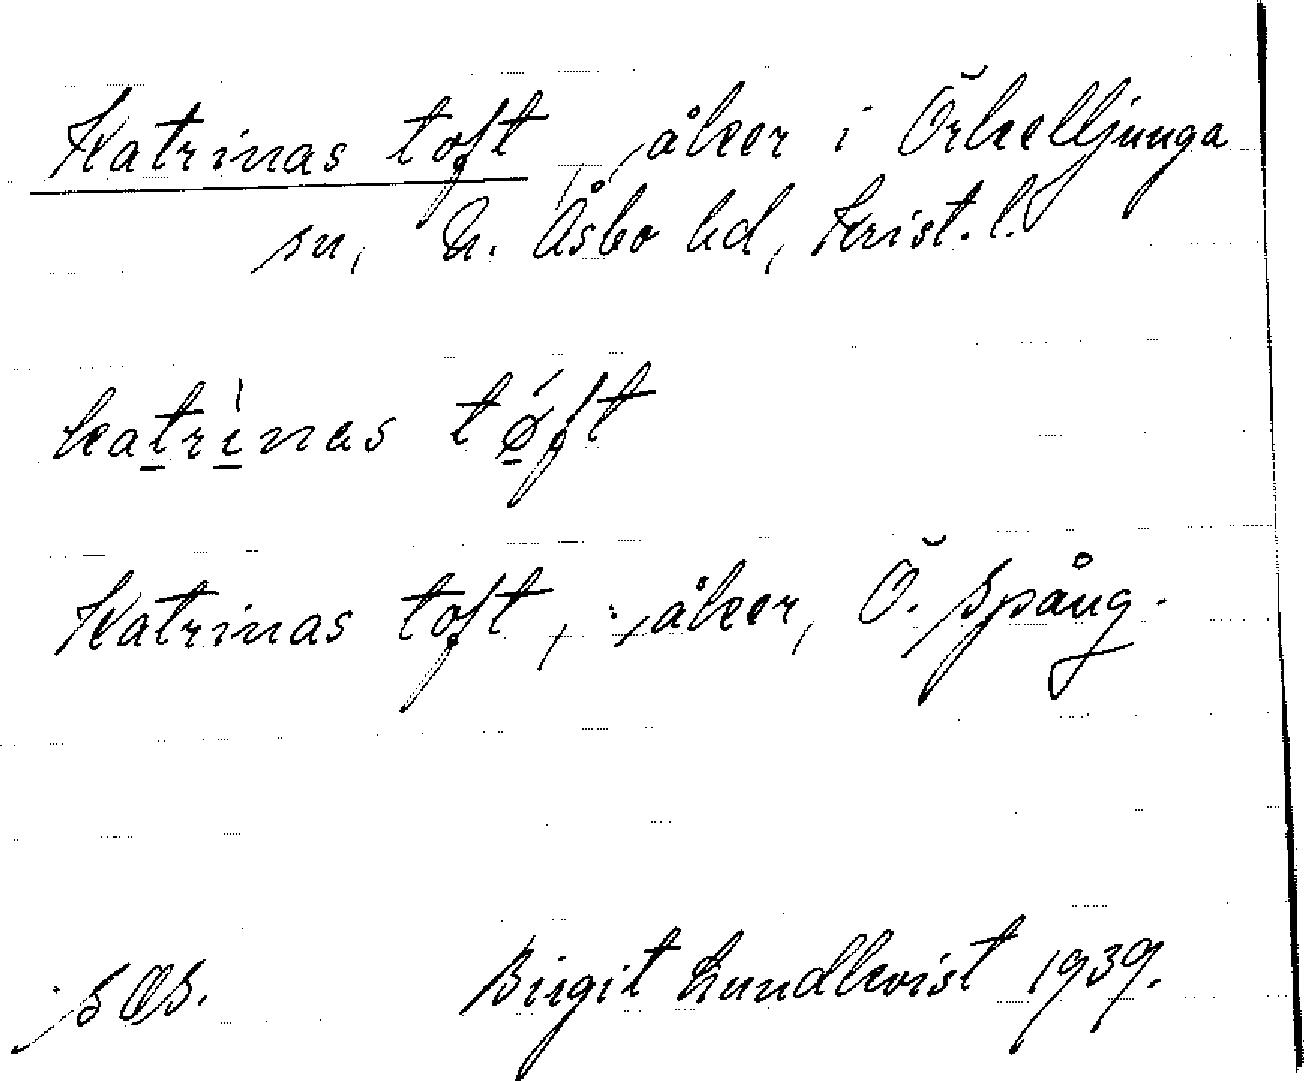 Katrinas toft, åker i Örkelljunga
sn, N. Åsbo hd, Krist. l.
katrìnas tǿft
Katrinas toft, åker, Ö. Spång.
Birgit Lundkvist 1939.